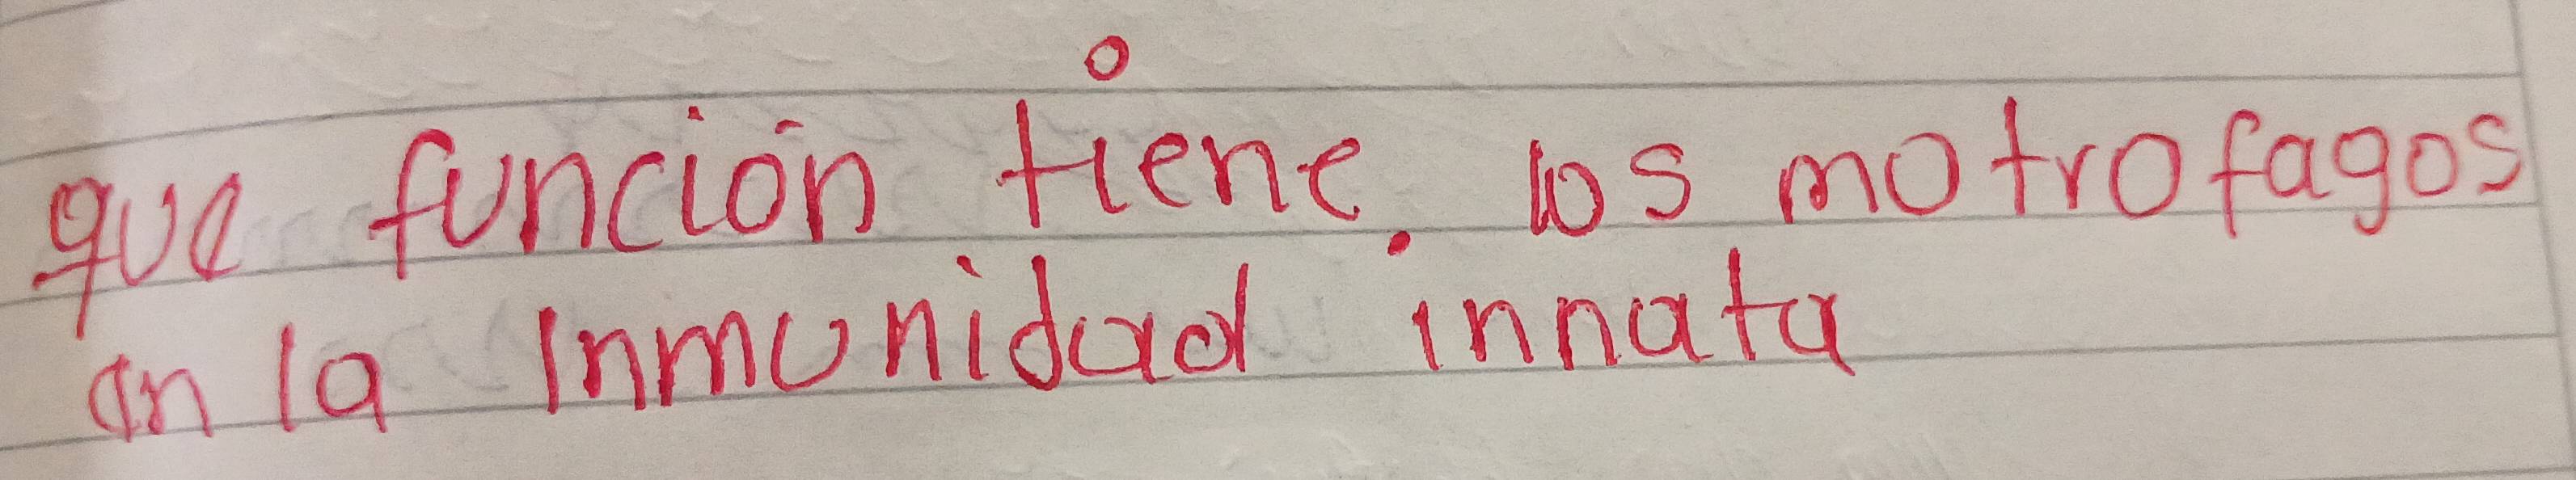 que función tiene. los motrofagos
en la inmunidad innata